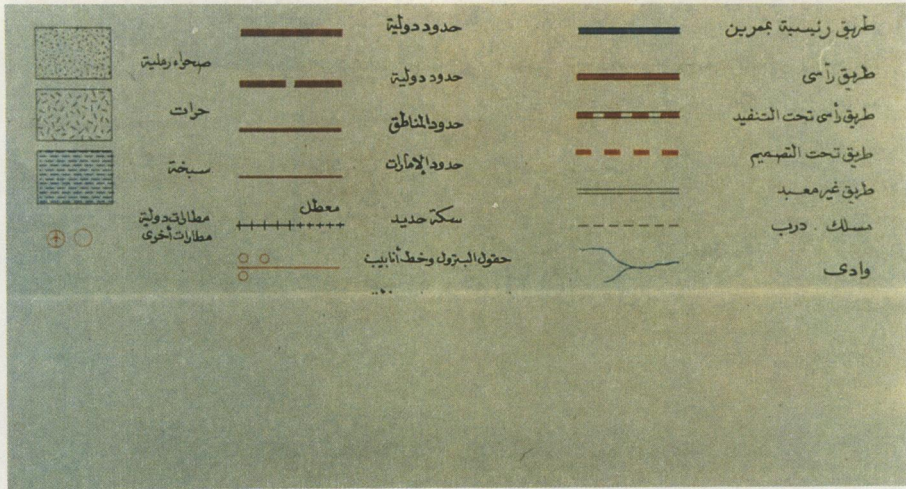 طريق رئيسية بممرين
طريق رأسى
طريق رأسى تحت التنفيد
طريق تحت التصميم
طريق غير معبد
مسلك . درب
وادى
حدود دولية
حدود دولية
حدود المناطق
حدود الإمارات
سكة حديد
معطل
حقول البترول وخط أنابيب
صحراء رملية
حرات
سبخة
مطارات دولية
مطارات أخرى